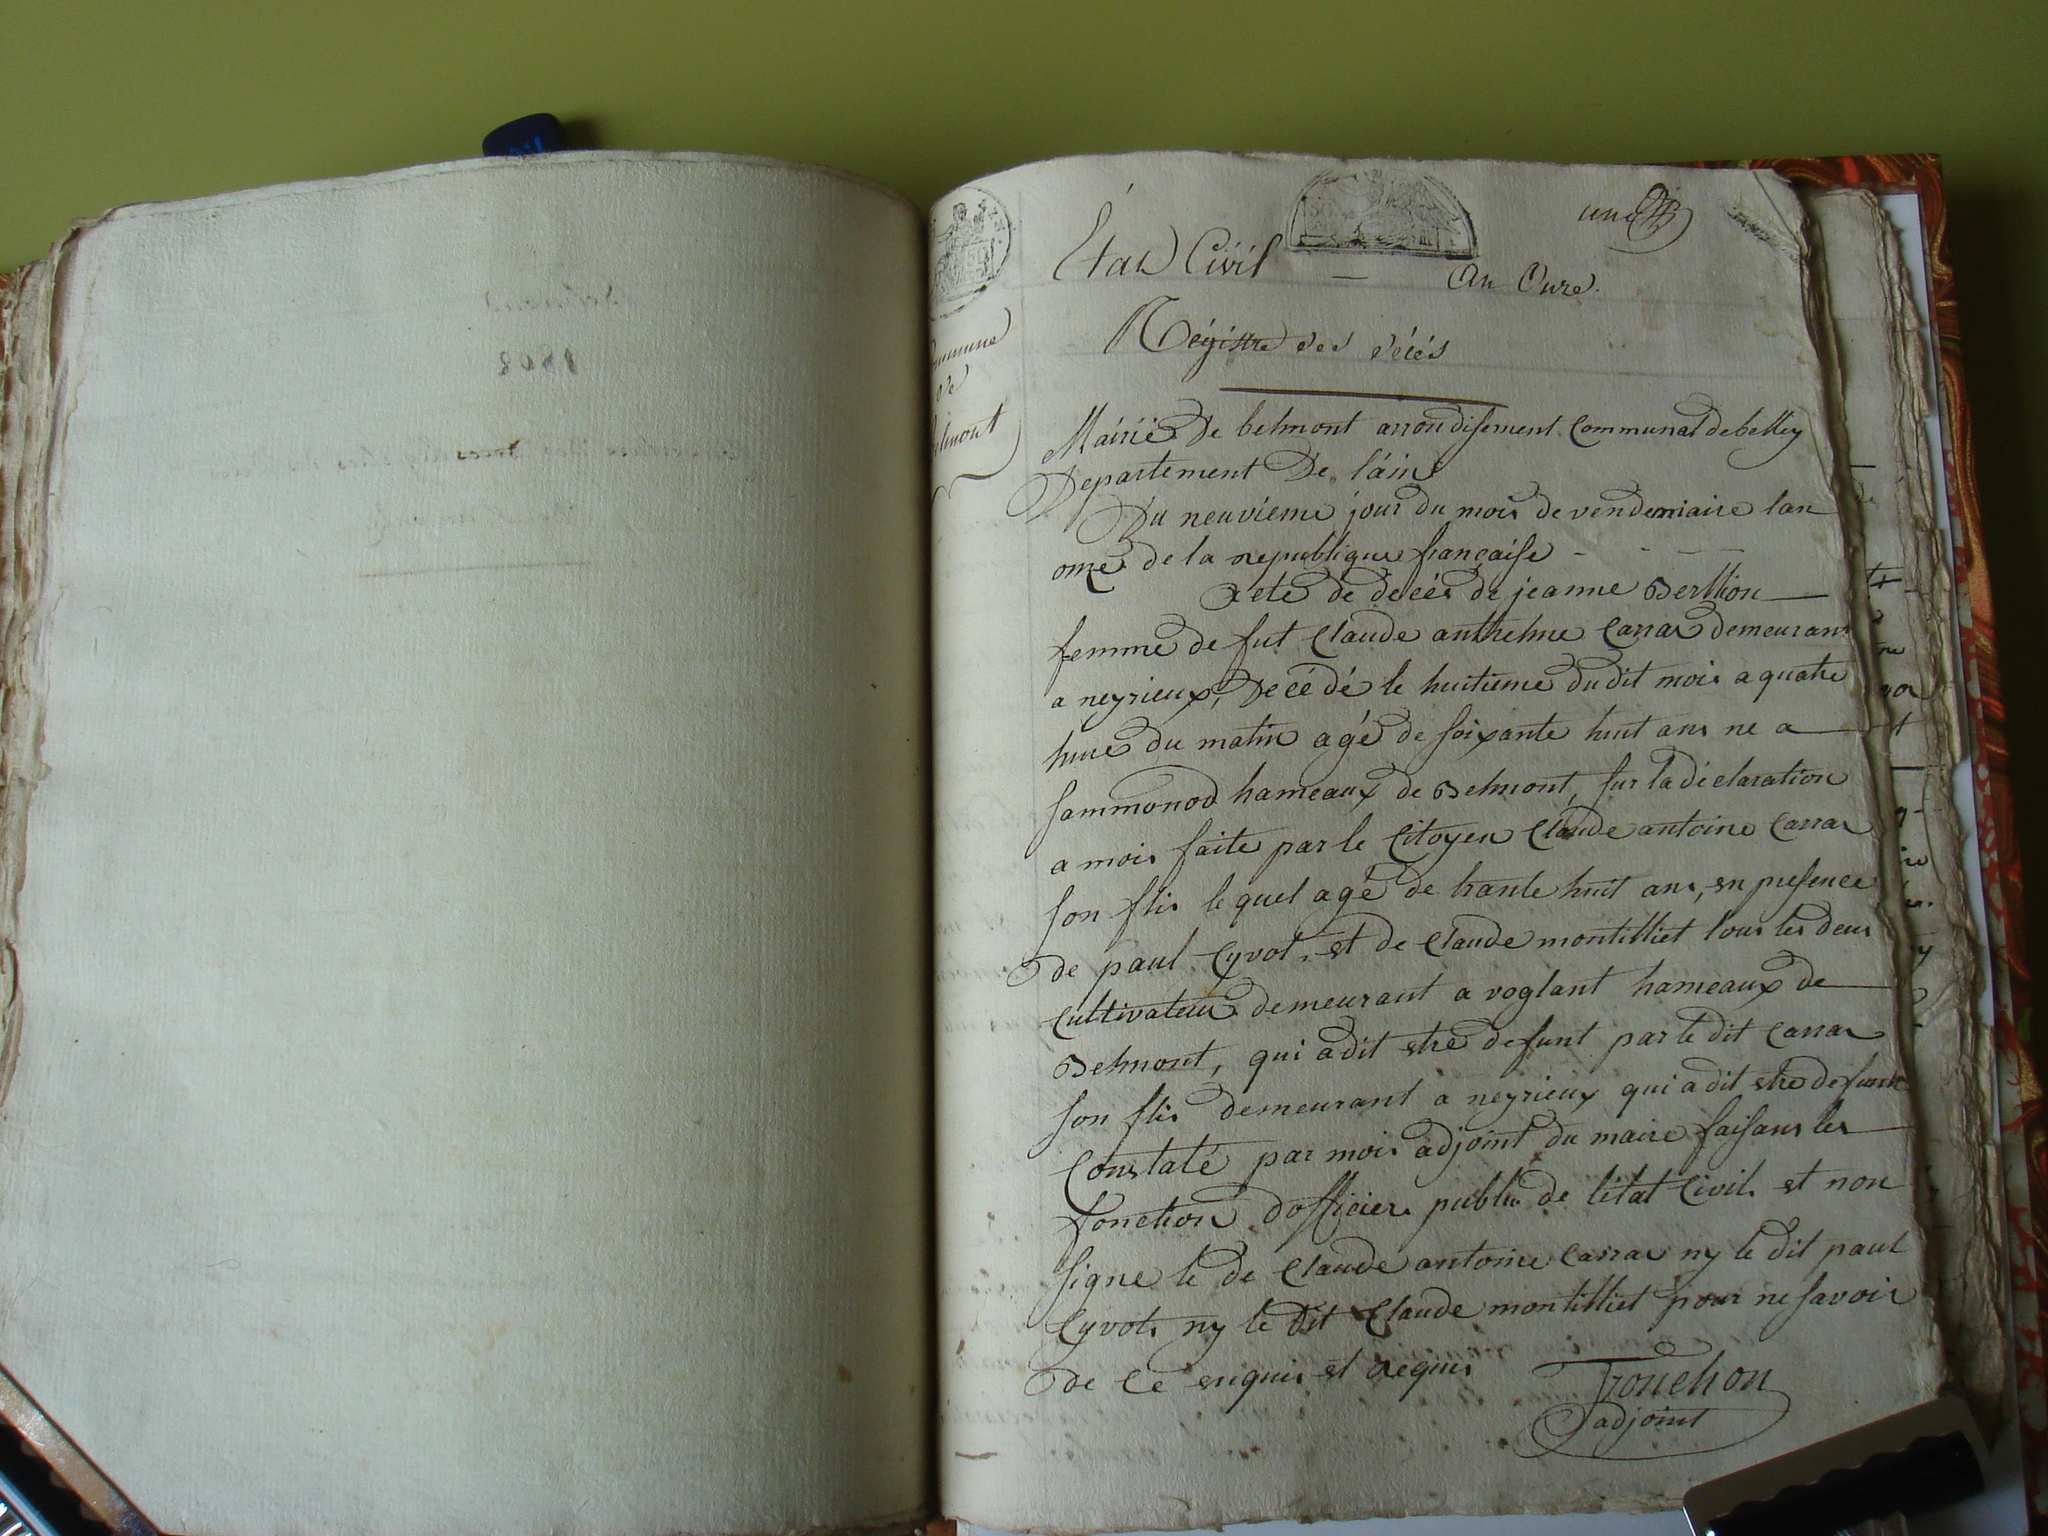 une
État Civil — An Onze.
Régistre des décés
Commune
de
Belmont
Mairie De belmont arrondisement Communal de belley
Departement De l'áin
Du neuvieme jour du mois de vendemiaire lan
onze de la republique françaife -
acte de decés de jeanne Berthion
femme de fut Claude anthelme Carrar demeurant
a neyrieux, Decédé le huitieme du dit mois a quatre
hure du matin agé de foixante huit ans ne a
fammonod hameaux de Belmont, fur la déclaration
a moi faite par le Citoyen Claude antoine Carrar
fon flis le quel agé de trante huit ans, en prefence
de paul Cyvot, et de Claude montilliet tous les deus
Cultivateur demeurant a voglant hameaux de
Belmont, qui a dit etre defunt par le dit Carrar
fon flis demeurant a neyrieux qui a dit etre defunt
Constaté par moi adjoint du maire faifans les
fonction dofficier public de létat Civil et non
figne le de Claude antoine Carrar ny le dit paul
Cyvot ny le dit Claude montilliet pour ne favoir
de Ce enquis et requis
Trouchon
adjoint
1808